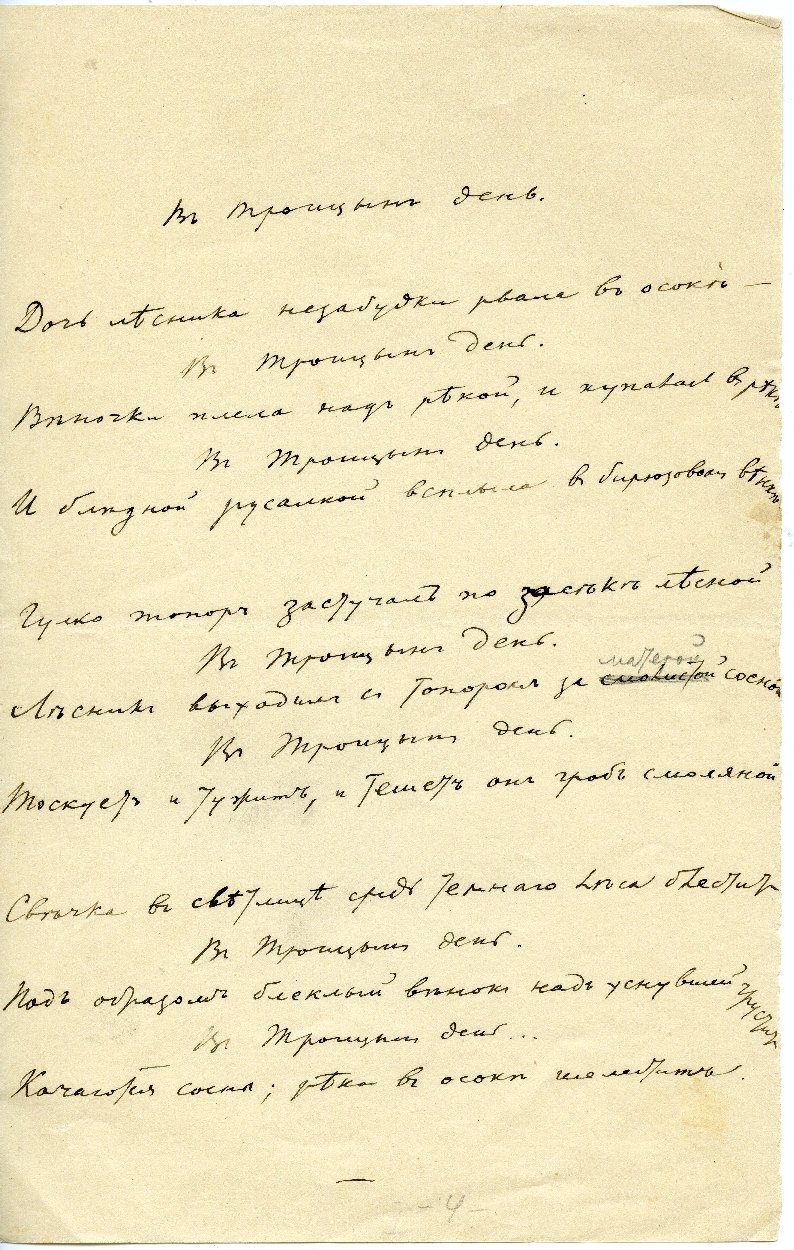 Въ Троицынъ день.
Дочь лѣсника незабудки рвала въ осокѣ —
Въ Троицынъ день.
Вѣночки плела надъ рѣкой, и купалась въ рѣкѣ
Въ Троицынъ день.
И блѣдной русалкой всплыла въ бирюзовом вѣнкѣ
Гулко топоръ застучалъ по засѣкѣ лѣсной
Въ Троицынъ день.
матерой
Лѣсникъ выходилъ съ топоромъ за смолистой сосной
Въ Троицынъ день.
Тоскуетъ и тужитъ, и тешетъ онъ гробъ смоляной
Свѣчка въ свѣтлицѣ средь темнаго лѣса блеститъ
Въ Троицынъ день.
Подъ образомъ блеклый вѣнокъ надъ уснувшей груститъ
Въ Троицынъ день...
Качаются сосны; рѣка въ осокѣ шелеститъ
- 4 -